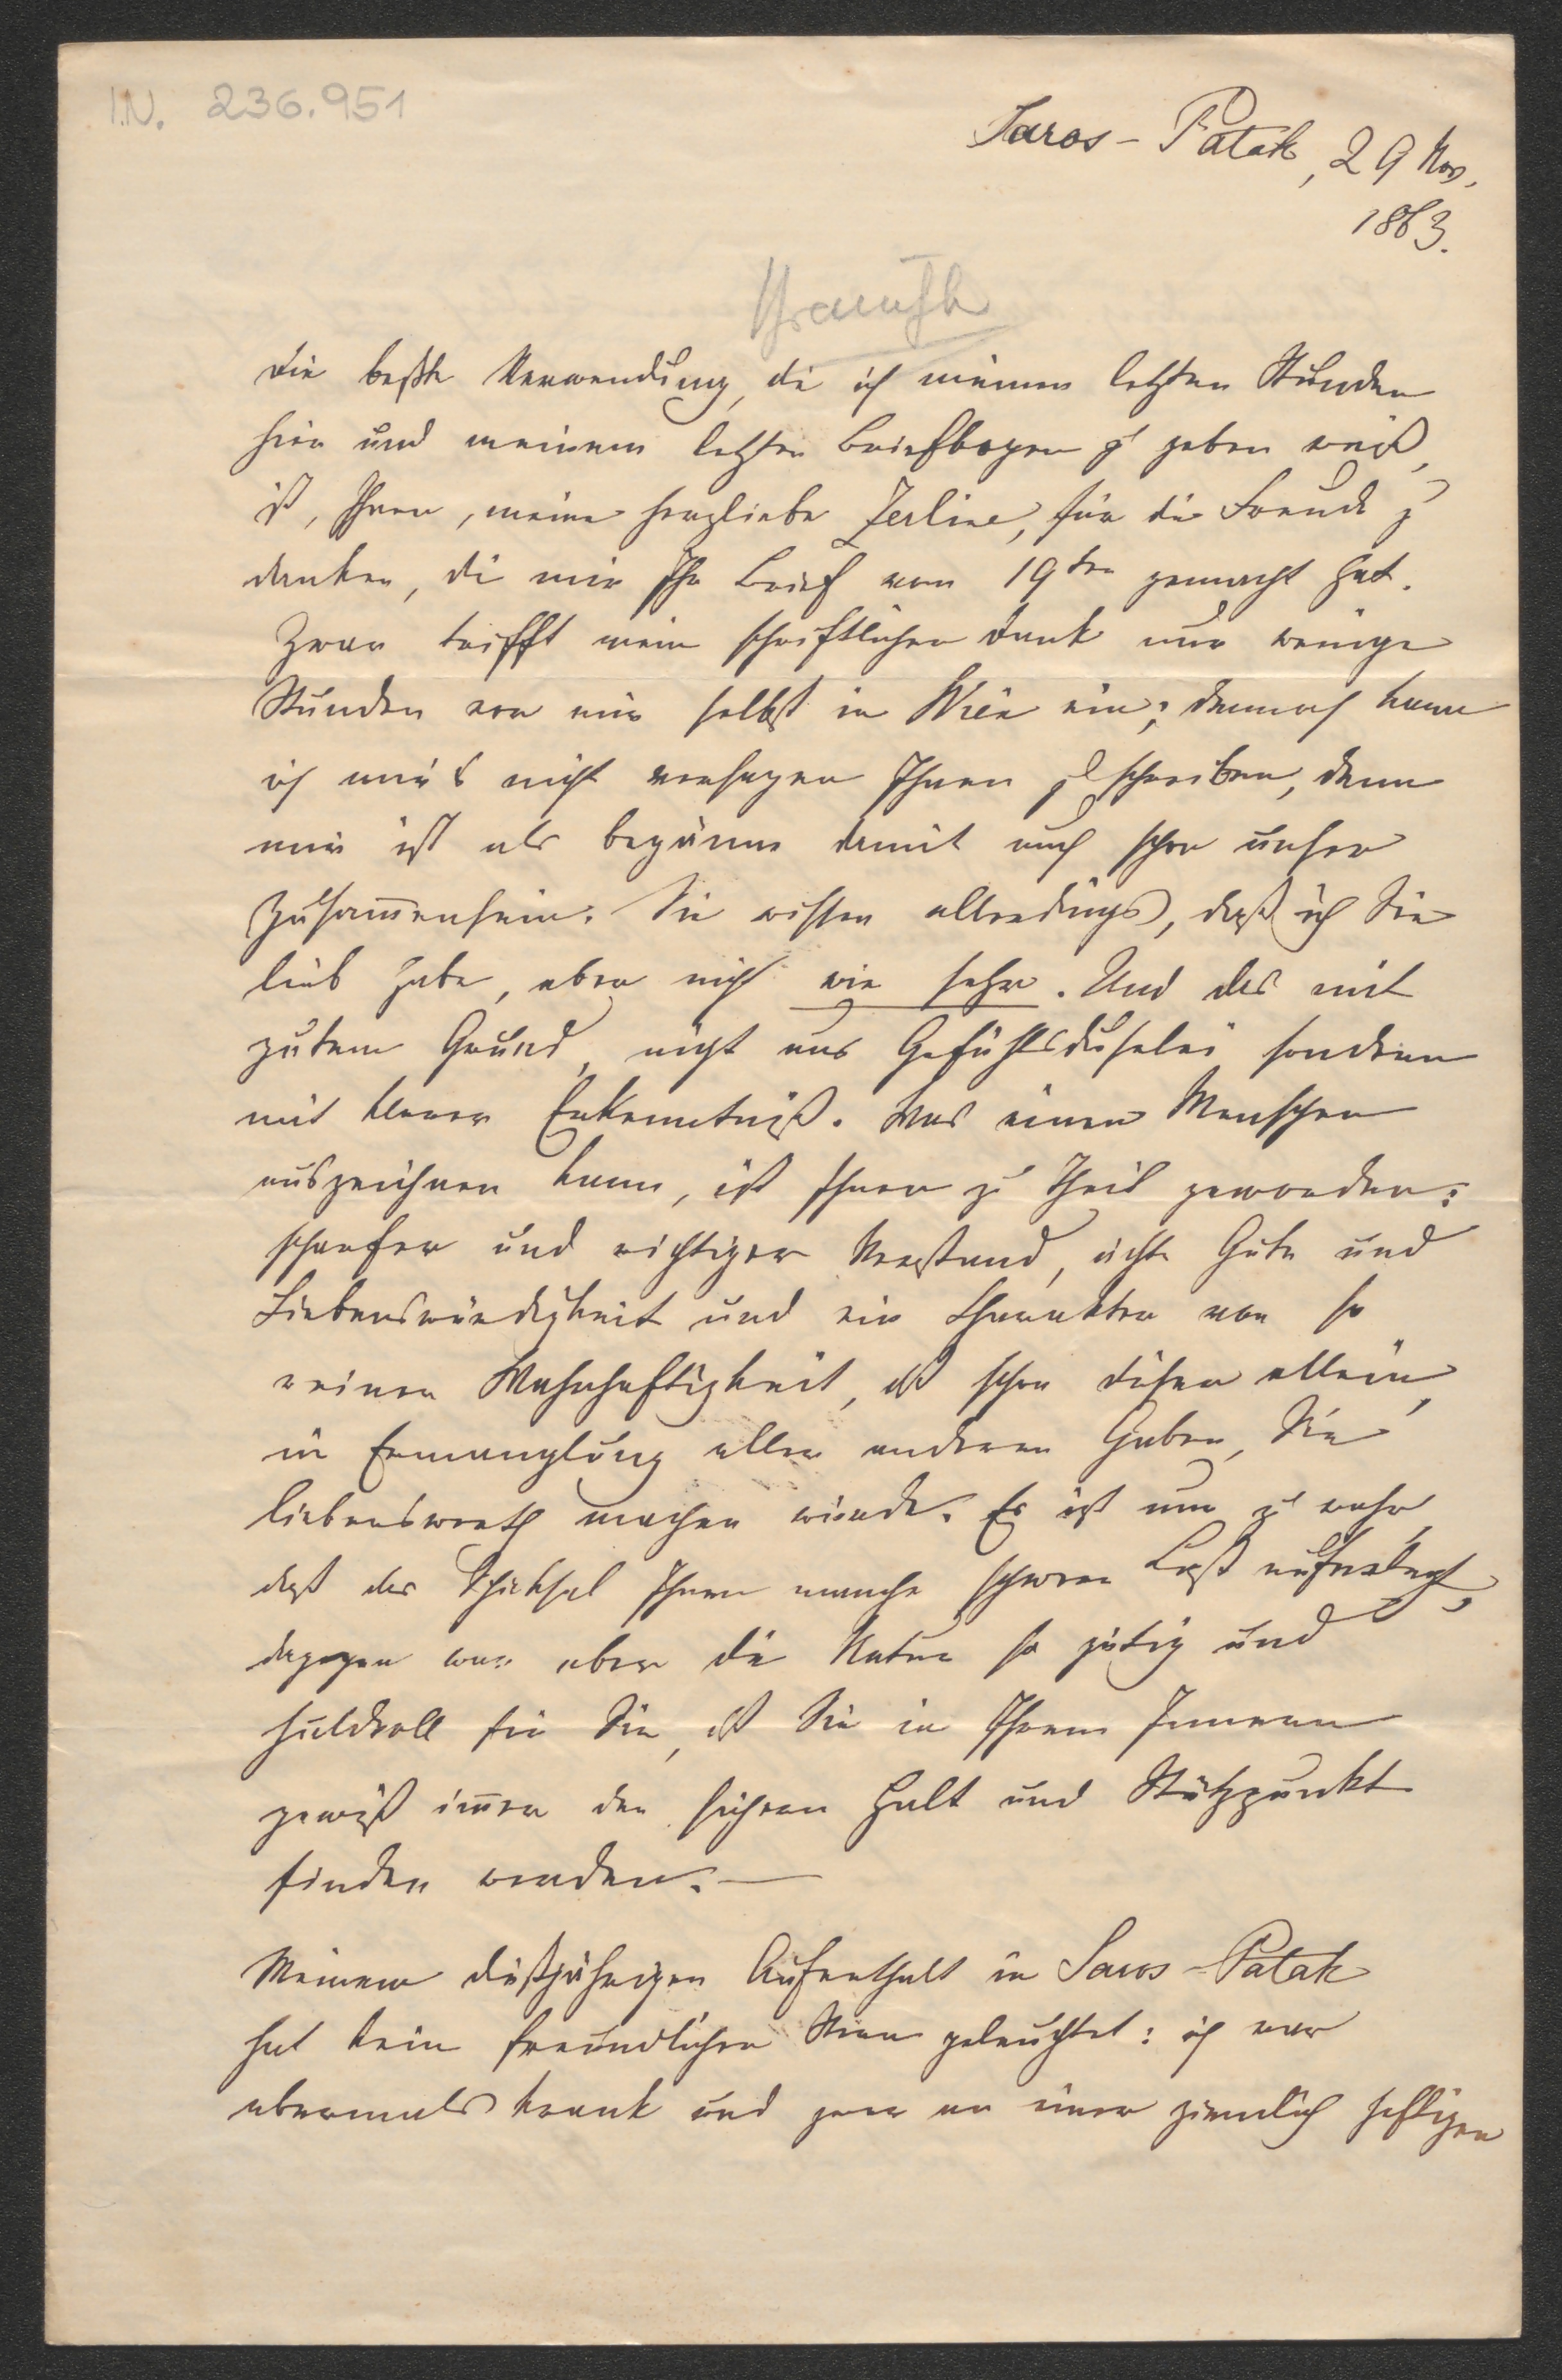 I.N. 236.951
Saros-Patak, 29 Nov.
1863.
Die beßte Verwendung, die ich meinen letzten Stunden
hier und meinem letzten Briefbogen zu geben weiß,
ist, Ihnen, meine herzliebe Zerline, für die Freude zu
danken, die mir Ihr Brief vom 19ten gemacht hat.
Zwar trifft mein schriftlicher Dank nur wenige
Stunden vor mir selbst in Wien ein; dennoch kann
ich mir's nicht versagen Ihnen zu schreiben, denn
mir ist als begänne damit auch schon unser
Zusam̄ensein. Sie wissen allerdings, daß ich Sie
lieb habe, aber nicht wie sehr. Und das mit
gutem Grund, nicht aus Gefühlsduselei sondern
mit klarer Erkenntniß. Was einen Menschen
auszeichnen kann, ist Ihnen zu Theil geworden:
scharfer und richtiger Verstand, ächte Güte und
Liebenswürdigkeit und ein Charakter von so
reiner Wahrhaftigkeit, daß schon dieser allein,
in Ermanglung aller anderen Gaben, Sie
liebenswerth machen würde. Es ist nur zu wahr,
daß das Schicksal Ihnen manche schwere Last auferlegt,
dagegen war aber die Natur so gütig und
huldvoll für Sie, daß Sie in Ihrem Inneren
gewiß im̄er den sicheren Halt und Stützpunkt
finden werden. —
Meinem dießjährigen Aufenthalt in Saros-Patak
hat kein freundlicher Stern geleuchtet: ich war
abermals krank und zwar an einer ziemlich heftigen